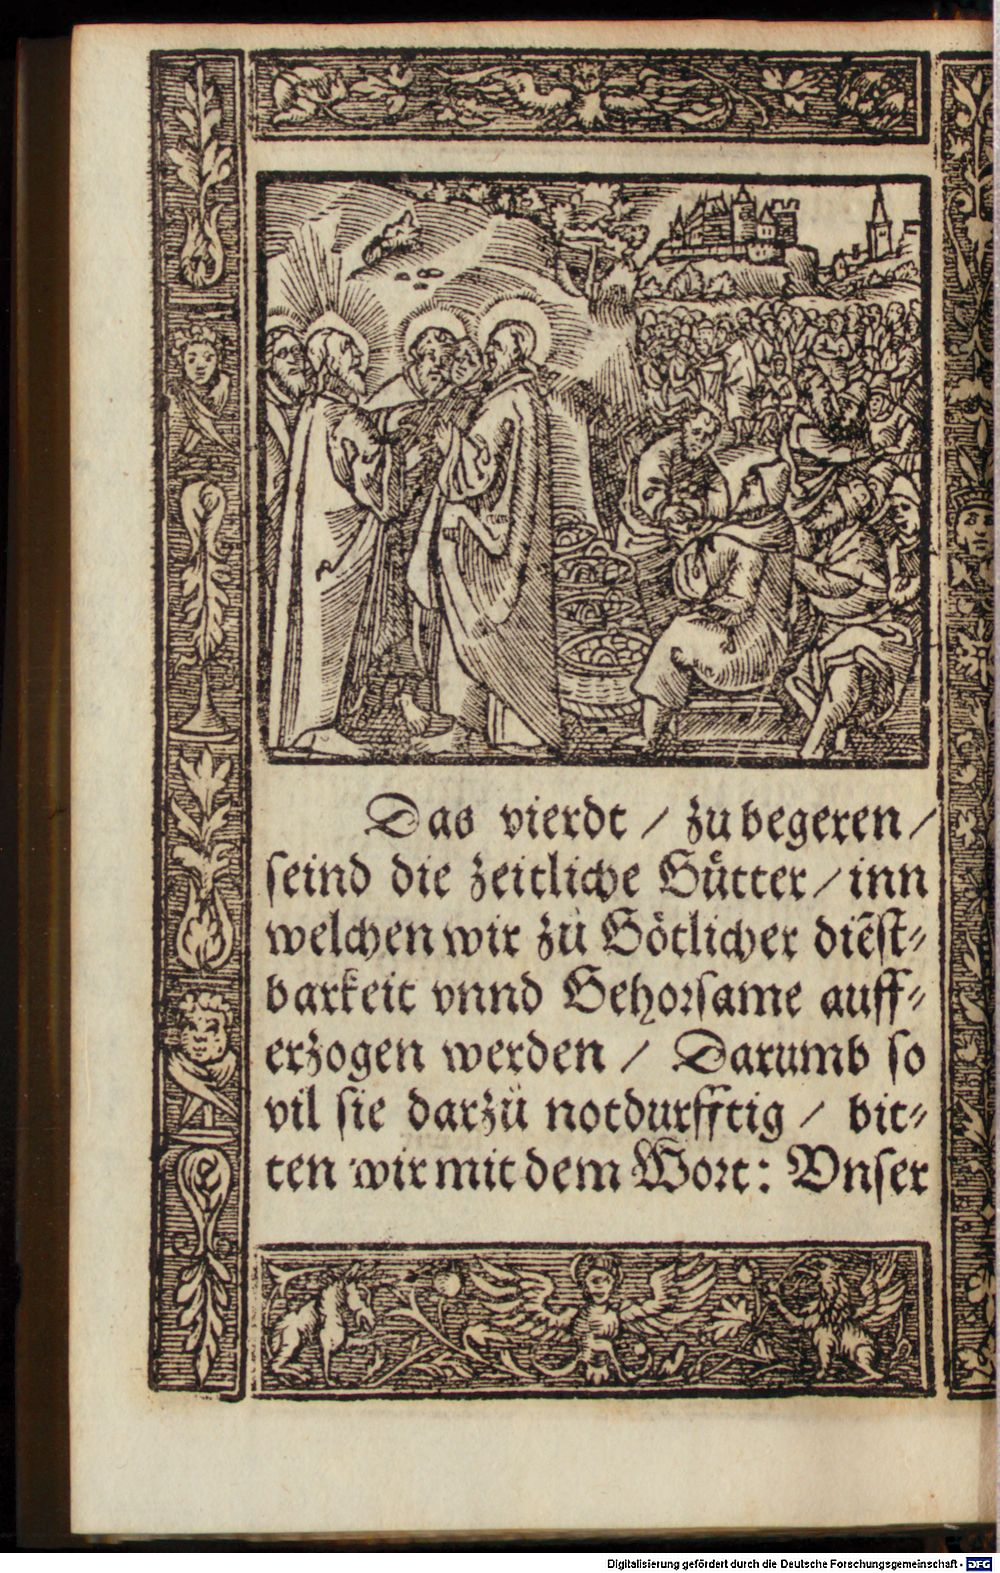 Das vierdt / zu begeren /
seind die zeitliche Gůtter / inn
welchen wir zů Götlicher diẽst⸗
barkeit vnnd Gehorsame auff⸗
erzogen werden / Darumb so
vil sie darzů notdurfftig / bit⸗
ten wir mit dem Wort: Vnser
Digitalisierung gefördert durch die Deutsche Forschungsgemeinschaft - DFG